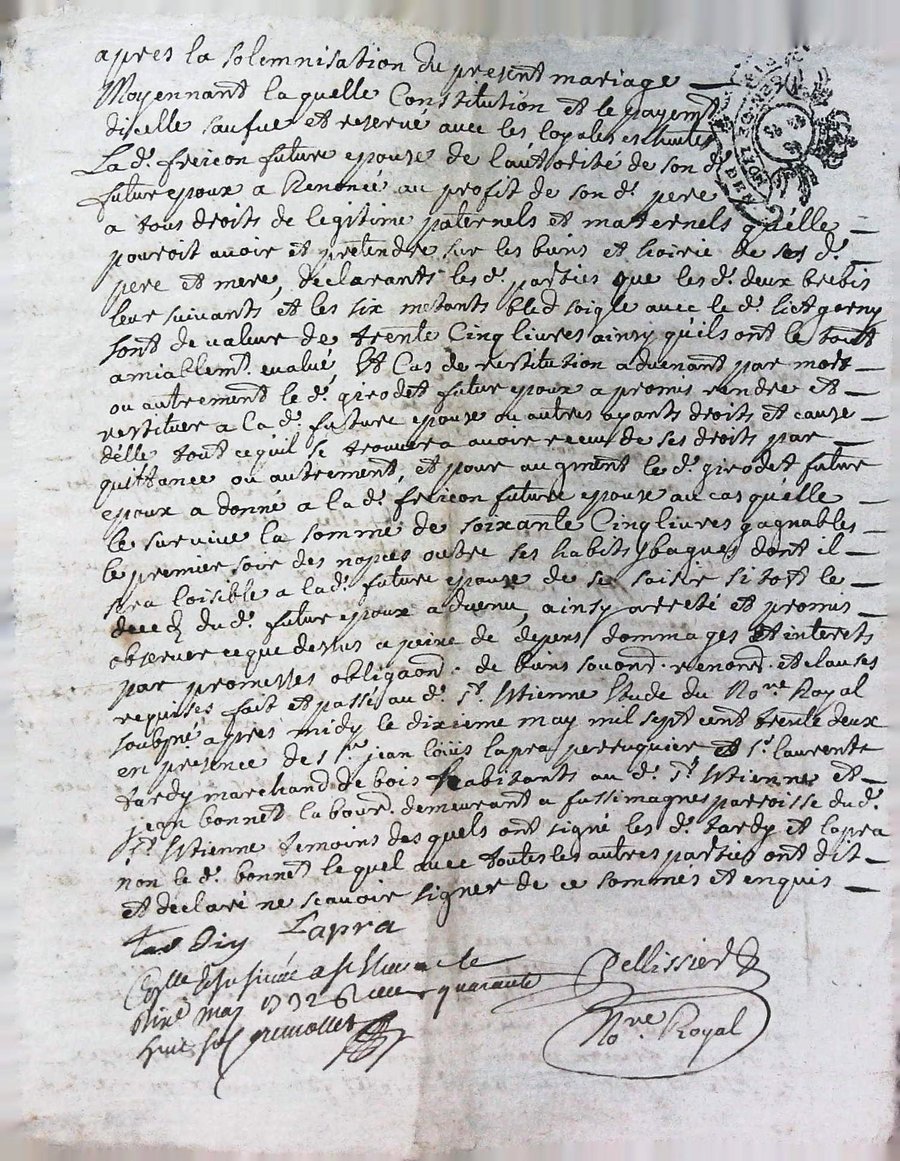 apres la solemnisation du present mariage
Moyennant laquelle Constitution et le payemt
dicelle saufue et reservé avec les loyales
La d. freicon future epouze de l'authorité de son d.
futur epoux a Renoncé au profit de son d. pere
a tous droits de legitime paternels et maternels qu'elle
pouroit avoir et pretendre sur les biens et hoirie de ses d.
pere et mere, declarants les d. parties que les d. deux brebis
leur suivants et les six metants bled soigle avec le d. lict garny
sont de valeur de trente Cinq livres ainsy qu'ils ont le tout
amiablemt. evalué, Et Cas de restitution advenant par mort
ou autrement le d. girodet futur epoux a promis rendre et
restituer a la d. future epouze ou autres ayants droits et cauze
d'elle tout ce quil se trouvera avoir receu de ses droits par
quittance ou autrement, et pour augment le d. girodet futur
epoux a donné a la d. freicon future epouze au cas qu'elle
le survive la somme de soixante Cinq livres gagnables
le premier soir des nopces outre ses habits bagues dont il
sera loisible a la d. future epouze de se saisir sitott le
deced du d. futur epoux advenu, ainsy arreté et promis
observer ce que dessus a peine de depens dommages Et interets
par promesses obligaond. de biens renond. et clauses
requises fait et passé au d. St. Ettienne Etude du Nore. Royal
soubné apres midy le dixieme may mil sept cent trente deux
en presence de sr. jean loüis lapra perruquier et sr. laurent
tardy marchand de bois habitants au d. St. Ettienne et
jean bonnet labour. demeurant a fussimagnes parroisse du d.
St. Ettienne temoins desquels ont signé les d. tardy et lapra
non le d. bonnet lequel avec toutes les autres parties ont dit
et declaré ne scavoir signer de ce sommés et enquis
tardiy Lapra
Pellissier
may 1732 quarante
huit sols
Nore. Royal